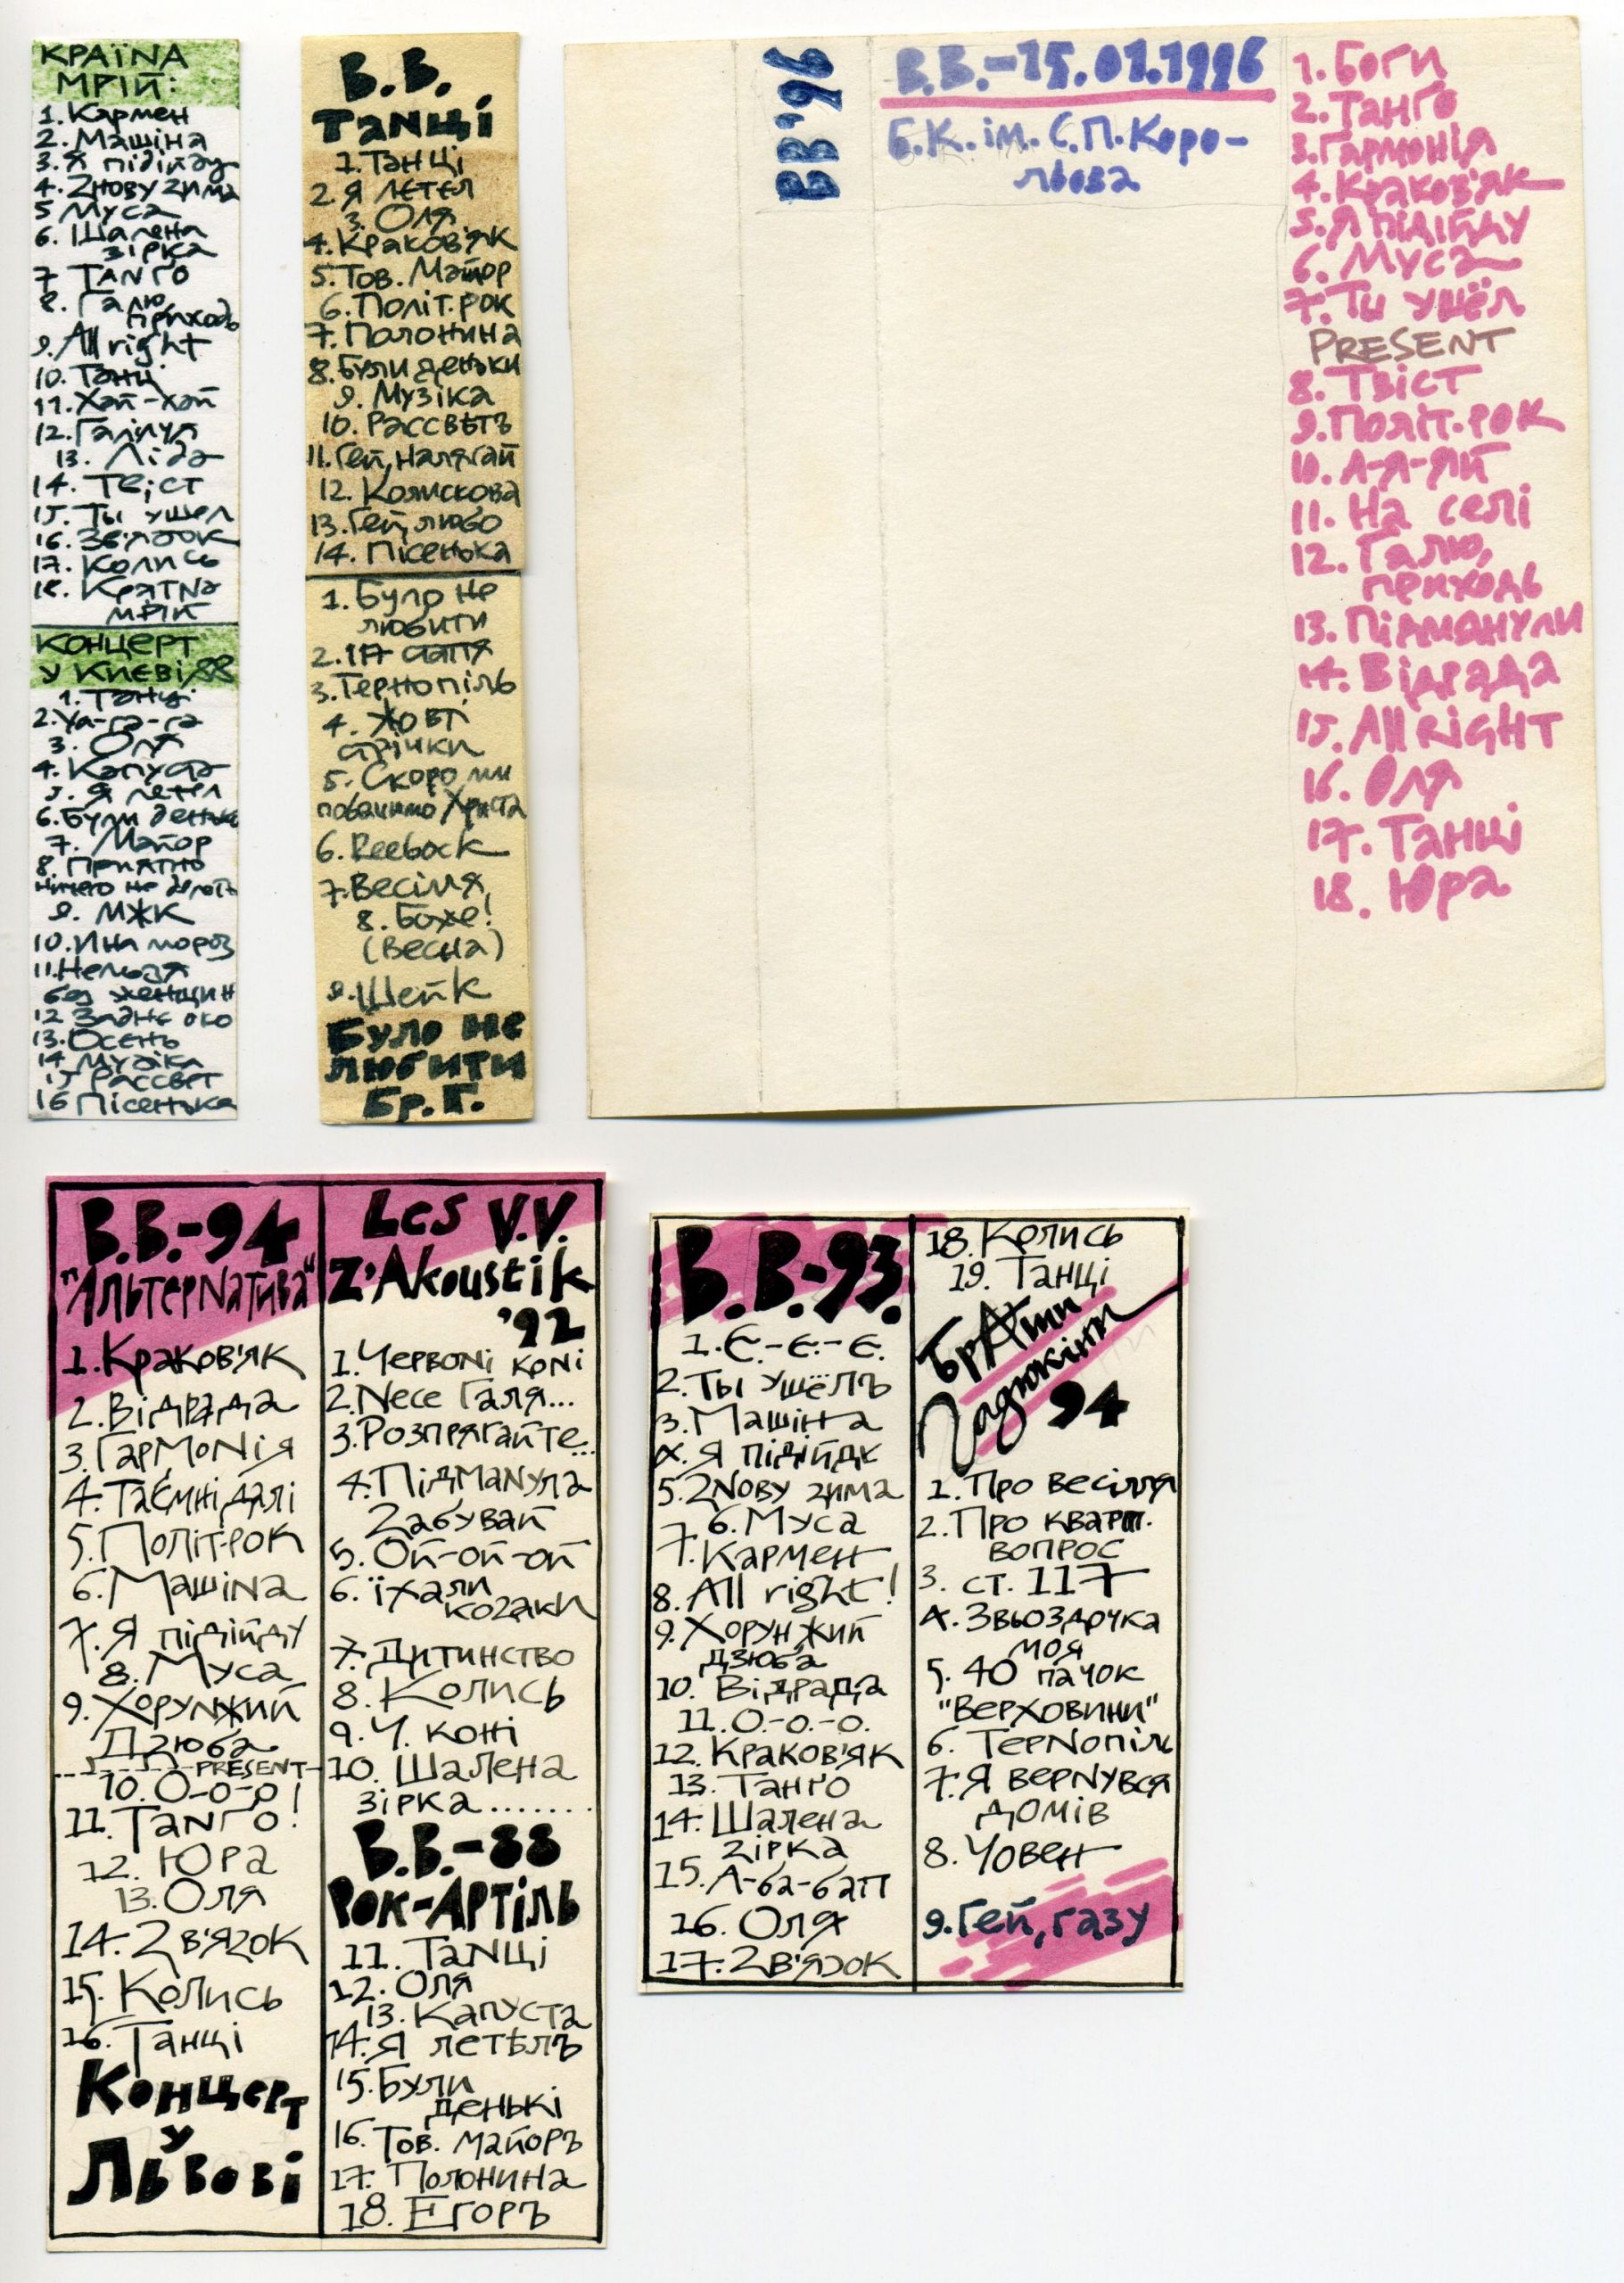 КРАЇНА
МРІЙ:
1. Кармен
2. Машіна
3. Я підійду
4. Zнову zима
5 Муса
6. Шалена
зірка
7 ТАNГО
8. Галю,
приходь
9. All right
10. Танці
11. Хай-хай
12. Галілуя
13. Ліда
14. Твіст
15. Ты ушел
16. Зв'язок
17. Колись
18. КраїNа
мрій
КОНЦЕРТ
У КИЄВІ/88
1. Танці
2. Ya-га-га
3. Оля
4. Капуста
5. Я летел
6. Були деньки
7. Майор
8. Приятно
ничего не делать
9. МЖК
10. И на мороз
11. Нельзя
без женщин
12 Заднє око
13. Осень
14 Музіка
15 Рассвет
16 Пісенька
В.В.
ТаNці
1. Танці
2. Я летел
3. Оля
4. Краков'як
5. Тов. Майор
6. Політ. рок
7. Полонина
8. Були деньки
9. Музіка
10. Рассвѣтъ
11. Гей, налягай
12. Колискова
13. Гей, любо
14. Пісенька
1. Було не
любити
2. 117 стаття
3. Тернопіль
4. Жовті
стрічки
5. Скоро ми
побачимо Христа
6. Reebock
7. Весілля
8. Боже!
(Весна)
9. Шейк
Було не
любити
Бр. Г.
ВВ'96
В.В.-15.01.1996
Б.К. ім. С.П. Коро-
льова
1. Боги
2. Танго
3. Гармонія
4. Краков'як
5. Я підійду
6. Муса
7. Ты ушёл
PRESENT
8. Твіст
9. Політ. рок
10. А-я-яй
11. На селі
12. Галю,
приходь
13. Підманули
14. Відрада
15. All RIGHT
16. Оля
17. Танці
18. Юра
В.В.-94
"АльтерNатива"
1. Краков'як
2. Відрада
3. ГармоNія
4. Таємні далі
5. Політ-рок
6. МашіNа
7. Я підійду
8. Муса
9. ХоруNжий
Дзюба
PRESENT
10. О-о-о!
11. ТаNго!
12. Юра
13. Оля
14. Zв'яzок
15. Колись
16. Танці
Концерт
у
Львові
Les V.V.
Z'Akoustik
'92
1. ЧервоNі коні
2. Nесе Галя...
3. Розпрягайте...
4. ПідмаNула
Zабувай
5. Ой-ой-ой
6. Їхали
коzаки
7. Дитинство
8. Колись
9. Ч. коні
10. Шалена
зірка.......
В.В.-88
Рок-Артіль
11. ТаNці
12. Оля
13. Капуста
14. Я летѣлъ
15. Були
денькі
16. Тов. майоръ
17. Полонина
18. Егоръ
В.В-93.
1. Є.-є.-є.
2. Ты ушёлъ
3. Машіна
4. Я підійдк
5. ZNову zима
6. Муса
7. Кармен
8. All right!
9. Хорунжий
дзюба
10. Відрада
11. О.-о.-о.
12. Краков'як
13. Танґо
14. Шалена
zірка
15. А-ба-бап
16. Оля
17. Zв'язок
18. Колись
19. Танці
Брати
Гадюкіни
94
1. Про весілля
2. Про кварт.
вопрос
3. ст. 117
4. Звьоздочка
моя
5. 40 пачок
"Верховини"
6. ТерNопіль
7. Я верNувся
домів
8. Човен
9. Гей, газу